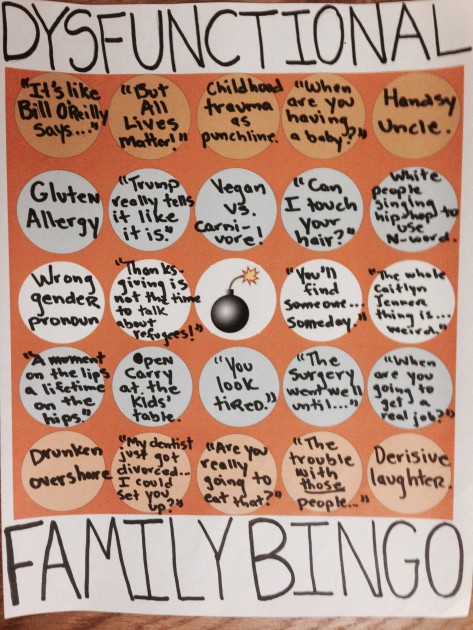 DYSFUNCTIONAL
"It's like
Bill O'Reilly
says..."
"But
All
Lives
Matter!"
Childhood
trauma
as
punchline.
"When
are you
having
a baby?"
Handsy
Uncle.
Gluten
Allergy
"Trump
really tells
it like
it is."
Vegan
vs.
Carni-
vore!
"Can
I touch
your
hair?"
White
people
singing
hip hop to
use
N-word.
Wrong
gender
pronoun
"Thanks-
giving is
not the time
to talk
about
refugees!"
"You'll
find
someone...
someday."
"The whole
Caitlyn
Jenner
thing is...
weird."
"A moment
on the lips
a lifetime
on the
hips."
Open
Carry
at the
Kids'
table.
"You
look
tired."
"The
surgery
went well
until..."
"When
are you
going to
get a
real job?"
Drunken
overshare
"My dentist
just got
divorced...
I could
set you
up?"
"Are you
really
going to
eat that?"
"The
trouble
with
those
people..."
Derisive
laughter.
FAMILY BINGO